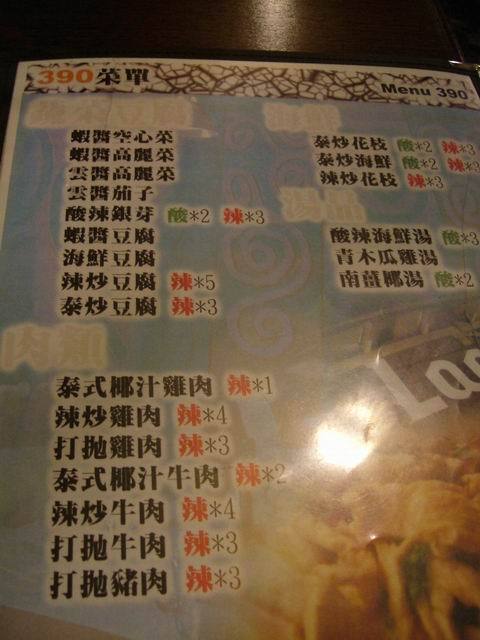 390菜單
Menu 390
蝦醬空心菜
蝦醬高麗菜
雲醬高麗菜
雲醬茄子
酸辣銀芽 酸*2 辣*3
蝦醬豆腐
海鮮豆腐
辣炒豆腐 辣*5
泰炒豆腐 辣*3
肉類
泰式椰汁雞肉 辣*1
辣炒雞肉 辣*4
打拋雞肉 辣*3
泰式椰汁牛肉 辣*2
辣炒牛肉 辣*4
打拋牛肉 辣*3
打拋豬肉 辣*3
泰炒花枝 酸*2 辣*3
泰炒海鮮 酸*2 辣*3
辣炒花枝 辣*3
湯品
酸辣海鮮湯 酸*3
青木瓜雞湯
南薑椰湯 酸*2